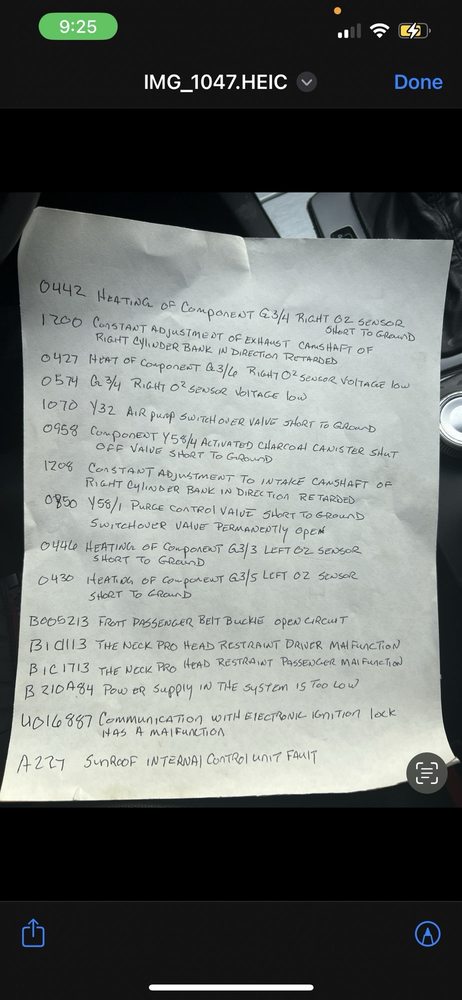 9:25
IMG_1047.HEIC
Done
0442 HEATING OF COMPONENT G3/4 RIGHT O2 SENSOR
SHORT TO GROUND
1200 CONSTANT ADJUSTMENT OF EXHAUST CAMSHAFT OF
RIGHT CYLINDER BANK IN DIRECTION RETARDED
0427 HEAT OF COMPONENT G3/6 RIGHT O2 SENSOR VOLTAGE LOW
0574 G3/4 RIGHT O2 SENSOR VOLTAGE LOW
1070 Y32 AIR PUMP SWITCHOVER VALVE SHORT TO GROUND
0958 COMPONENT Y58/4 ACTIVATED CHARCOAL CANISTER SHUT
OFF VALVE SHORT TO GROUND
1208 CONSTANT ADJUSTMENT TO INTAKE CAMSHAFT OF
RIGHT CYLINDER BANK IN DIRECTION RETARDED
0850 Y58/1 PURGE CONTROL VALVE SHORT TO GROUND
SWITCHOVER VALVE PERMANENTLY OPEN
0446 HEATING OF COMPONENT G3/3 LEFT O2 SENSOR
SHORT TO GROUND
0430 HEATING OF COMPONENT G3/5 LEFT O2 SENSOR
SHORT TO GROUND
B005213 FRONT PASSENGER BELT BUCKLE OPEN CIRCUIT
B1C1113 THE NECK PRO HEAD RESTRAINT DRIVER MALFUNCTION
B1C1713 THE NECK PRO HEAD RESTRAINT PASSENGER MALFUNCTION
B210A84 POWER SUPPLY IN THE SYSTEM IS TOO LOW
U016887 COMMUNICATION WITH ELECTRONIC IGNITION LOCK
HAS A MALFUNCTION
A227 SUNROOF INTERNAL CONTROL UNIT FAULT